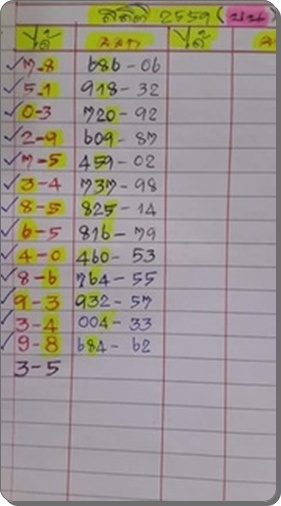 สถิติ 2559 (บน)
ได้ ผลออก ได้
7-8 686-06
5-1 918-32
0-3 720-92
2-9 609-87
7-5 459-02
3-4 737-98
8-5 825-14
6-5 816-79
4-0 460-53
8-6 764-55
9-3 932-57
3-4 004-33
9-8 684-62
3-5